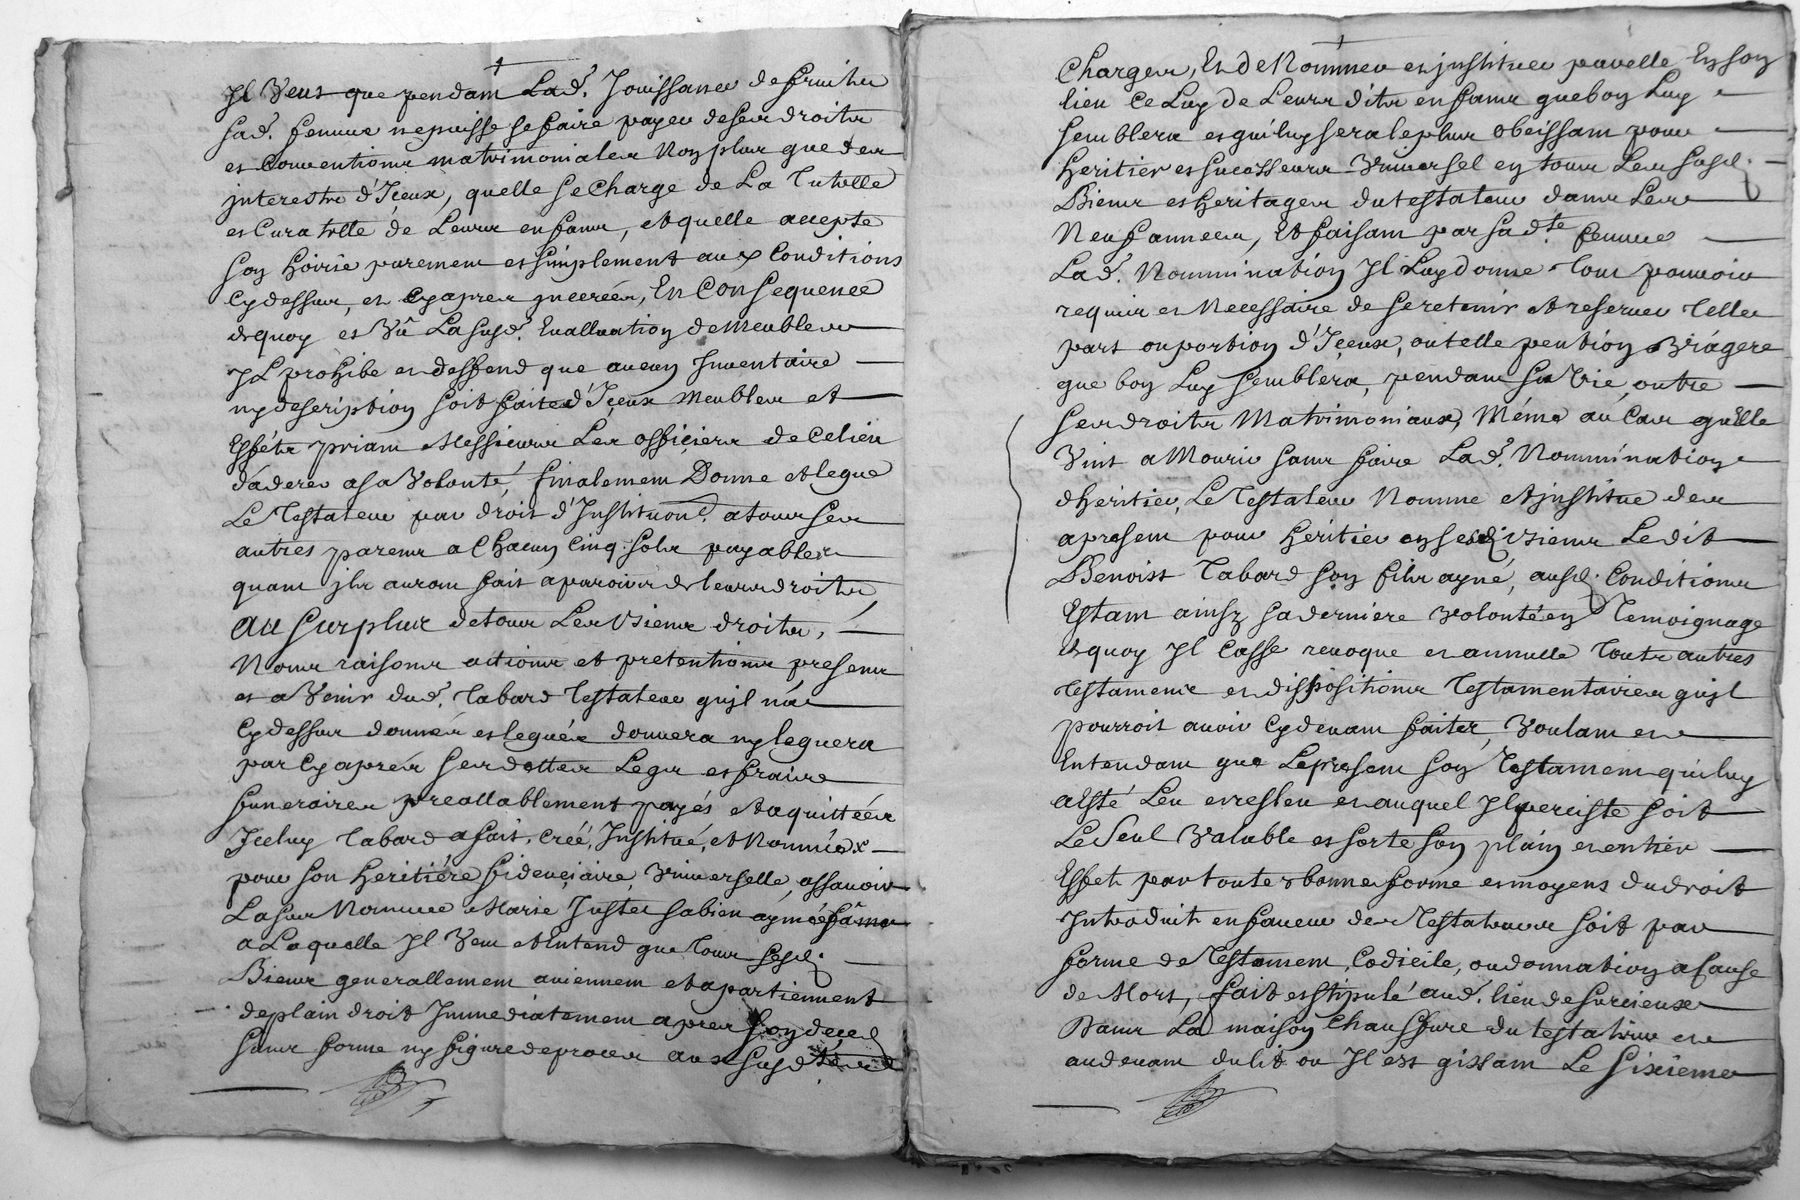 Il Veut que pendant Lad. Jouissance de fruits
Sad. femme nepuisse sefaire payer deses droits
et Conventions matrimoniales Non plus que des
interestz d'Iceux, quelle se Charge de La Tutelle
et Curatelle de Leurs enfans, et quelle accepte
son hoirie purement et simplement aux Conditions
Cydessus, et Cyapres , En Consequence
dequoy et Vû Lasusd. Evalluation de Meubles
IL prohibe et deffend que aucun Inventaire
ny description soit faite d'Iceux Meubles et
Effets priant Messieurs Les officiers de Celieu
d'aderer asa Volonté, finalement Donne et legue
Le Testateur par droit d'Institution. atous ses
autres parens a Chacun Cinq sols payables
quant ils auront fait aparoir de leurs droits
Au Surplus detous Les Siens droits,
Noms raisons actions et pretentions presens
et a Venir dud. Tabard Testateur quil n'a
Cydessus donnés et legués donnera ny leguera
par Cyaprés ses dettes Legs et fraix
funeraires preallablement payés et aquittées
Iceluy Tabard a fait, Créé, Institué, et Nommé
pour son heritiére fideuciaire, Universelle, assavoir
Lasus Nommée Marie Juster sabien aymée fâme
a Laquelle Il Veut et Entend que Tous sesd.
Biens generallement aviennent et apartiennent
deplain droit Immediatement apres son deced
sans forme ny figure de proces aux susd.
Charges, Et de Nommer et instituer par elle En son
lieu Celuy de Leurs dits enfans que bon Luy
semblera et quiluy sera leplus obeissant pour
heritier et sucesseur Universel en tous Les susd.
Biens et heritages du testateur dans Les
Neuf années, Et faisant par sad.te femme
Lad. Nommination Il Luy donne Tout pouvoir
requis et Necessaire de se retenir et reserver Telle
part ou portion d'Iceux, ou telle pention Viágere
que bon Luy semblera, pendant sa Vie, outre
ses droits Matrimoniaux, Méme au Cas quElle
Vint a Mourir sans faire Lad. Nommination
dheritier, Le Testateur Nomme et institue des
apresent pour héritier en sesd. biens Ledit
Benoist Tabard son fils ayné, ausd. Conditions
Estant ainsy sa derniere Volonté en Temoignage
dequoy Il Casse revoque et annulle Toute autres
Testamens et dispositions Testamentaires quil
pourroit avoir Cydevant faites, Voulant et
Entendant que Lepresent son Testament quiluy
aesté Leu et releu et auquel Il perciste soit
Le Seul Valable et sorte son plain et entier
Effet par toutes bonne forme et moyens du droit
Introduit en faveur des Testateurs soit par
forme de Testament, Codicile, ou donnation a Cause
de Mort, fait et stipulé aud. lieu de surcieux
Dans La maison Chauffure du testateur et
audevant du lit ou Il est gissant Le Sixiéme